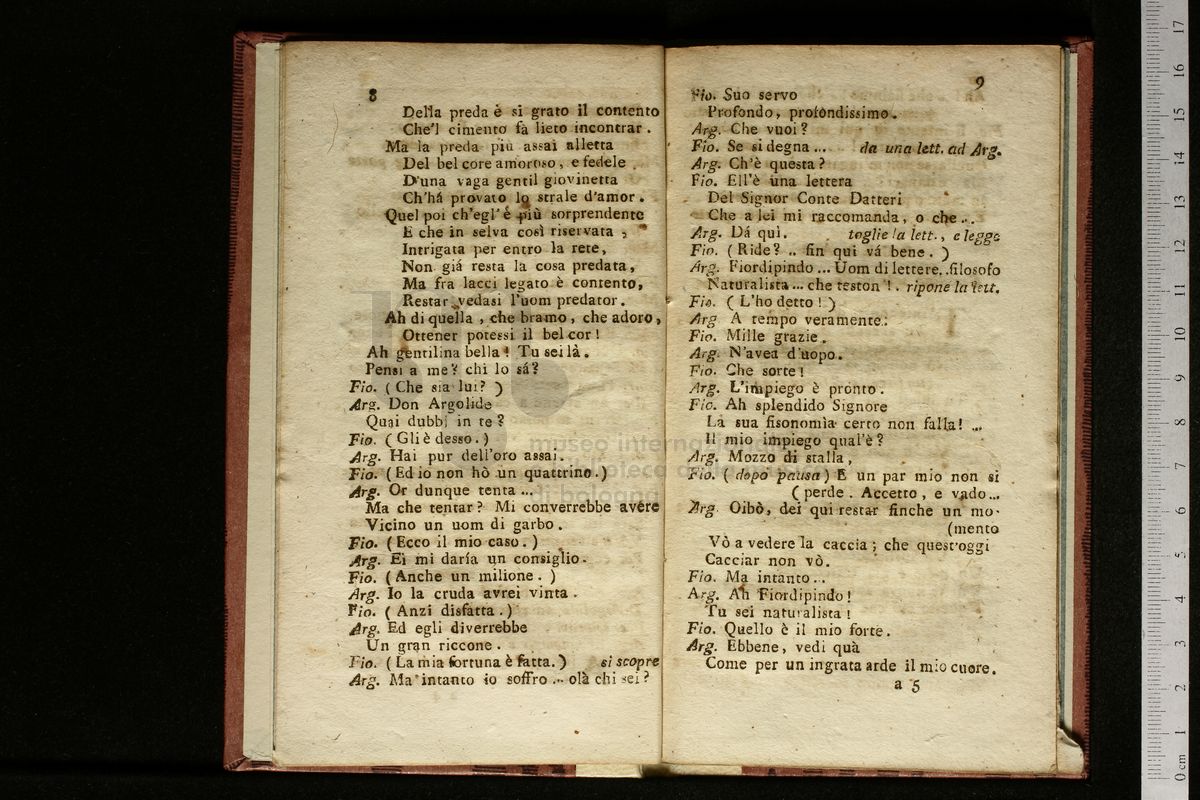 8
Della preda è si grato il contento
Che'l cimento fa lieto incontrar.
Ma la preda più assai alletta
Del bel core amoroso, e fedele
D'una vaga gentil giovinetta
Ch'há provato lo strale d'amor.
Quel poi ch'egl'é più sorprendente
E che in selva così riservata,
Intrigata per entro la rete,
Non giá resta la cosa predata,
Ma fra lacci legato è contento,
Restar vedasi l'uom predator.
Ah di quella, che bramo, che adoro,
Ottener potessi il bel cor!
Ah gentilina bella! Tu sei là.
Pensi a me? chi lo sá?
Fio. (Che sia lui?)
Arg. Don Argolide
Quai dubbj in te?
Fio. (Gli è desso.)
Arg. Hai pur dell'oro assai.
Fio. (Ed io non hò un quattrino.)
Arg. Or dunque tenta...
Ma che tentar? Mi converrebbe avere
Vicino un uom di garbo.
Fio. (Ecco il mio caso.)
Arg. Ei mi daría un consiglio.
Fio. (Anche un milione.)
Arg. Io la cruda avrei vinta.
Fio. (Anzi disfatta.)
Arg. Ed egli diverrebbe
Un gran riccone.
Fio. (La mia fortuna è fatta.) si scopre
Arg. Ma intanto io soffro... olà chi sei?
9
Fio. Suo servo
Profondo, profondissimo.
Arg. Che vuoi?
Fio. Se si degna... da una lett. ad Arg.
Arg. Ch'è questa?
Fio. Ell'è una lettera
Del Signor Conte Datteri
Che a lei mi raccomanda, o che...
Arg. Dá quì. toglie la lett., e legge
Fio. (Ride? .. fin qui vá bene.)
Arg. Fiordipindo... Uom di lettere..filosofo
Naturalista... che teston!. ripone la lett.
Fio. (L'ho detto!)
Arg A tempo veramente.
Fio. Mille grazie.
Arg. N'avea d'uopo.
Fio. Che sorte!
Arg. L'impiego è pronto.
Fio. Ah splendido Signore
La sua fisonomìa certo non falla! ...
Il mio impiego qual'è?
Arg. Mozzo di stalla,
Fio. (dopo pausa) E un par mio non si
(perde. Accetto, e vado...
Arg. Oibò, dei qui restar finche un mo-
(mento
Vò a vedere la caccia; che quest'oggi
Cacciar non vò.
Fio. Ma intanto...
Arg. Ah Fiordipindo!
Tu sei naturalista!
Fio. Quello è il mio forte.
Arg. Ebbene, vedi quà
Come per un ingrata arde il mio cuore.
a 5
museo internazionale
biblioteca della musica
di bologna
17
16
15
14
13
12
11
10
9
8
7
6
5
4
3
2
1
0 cm